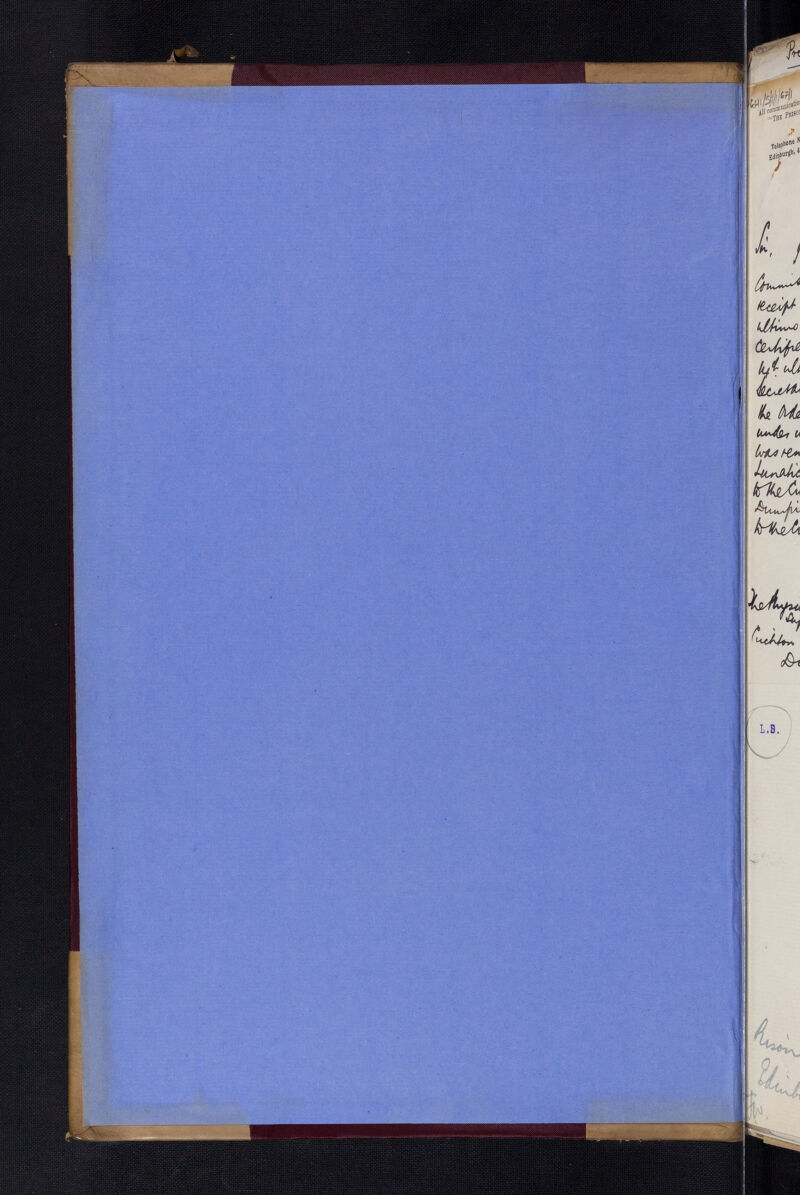 Pro
DGH1/5/1/1/67/1
All communication
"THE PRISO
Telephone N
Edinburgh, 4
Sir,
Commis
receipt
ultimo
Certifie
ult
Secreta
the Orde
under w
was rem
Lunatic
to the Cr
Dumfri
to the Cr
The Physic
Sup
Crichton
Du
L.B.
Prison
Edinb